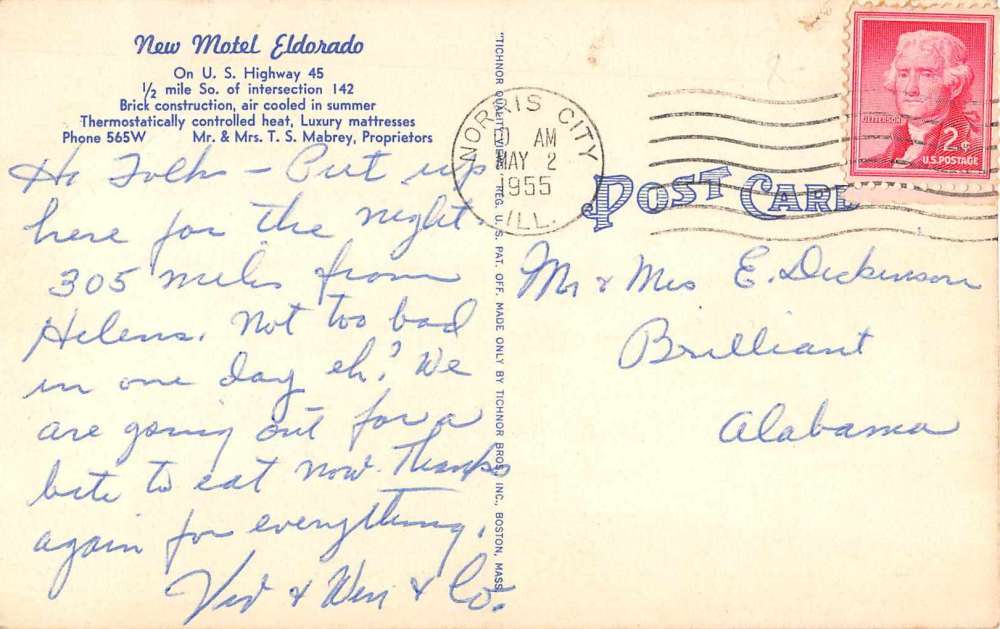 New Motel Eldorado
On U. S. Highway 45
1/2 mile So. of intersection 142
Brick construction, air cooled in summer
Thermostatically controlled heat, Luxury mattresses
Phone 565W Mr. & Mrs. T. S. Mabrey, Proprietors
Hi Folks – Put up
here for the night
305 miles from
Helens. Not too bad
in one day eh? We
are going out for a
bite to eat now. Thanks
again for everything.
& Win & Co.
"TICHNOR QUALITY VIEWS," REG. U. S. PAT. OFF. MADE ONLY BY TICHNOR BROS. INC., BOSTON, MASS.
NORRIS CITY
AM
MAY 2
1955
ILL.
JEFFERSON
2¢
U.S. POSTAGE
POST CARD
Mr & Mrs E. Dickinson
Brilliant
Alabama